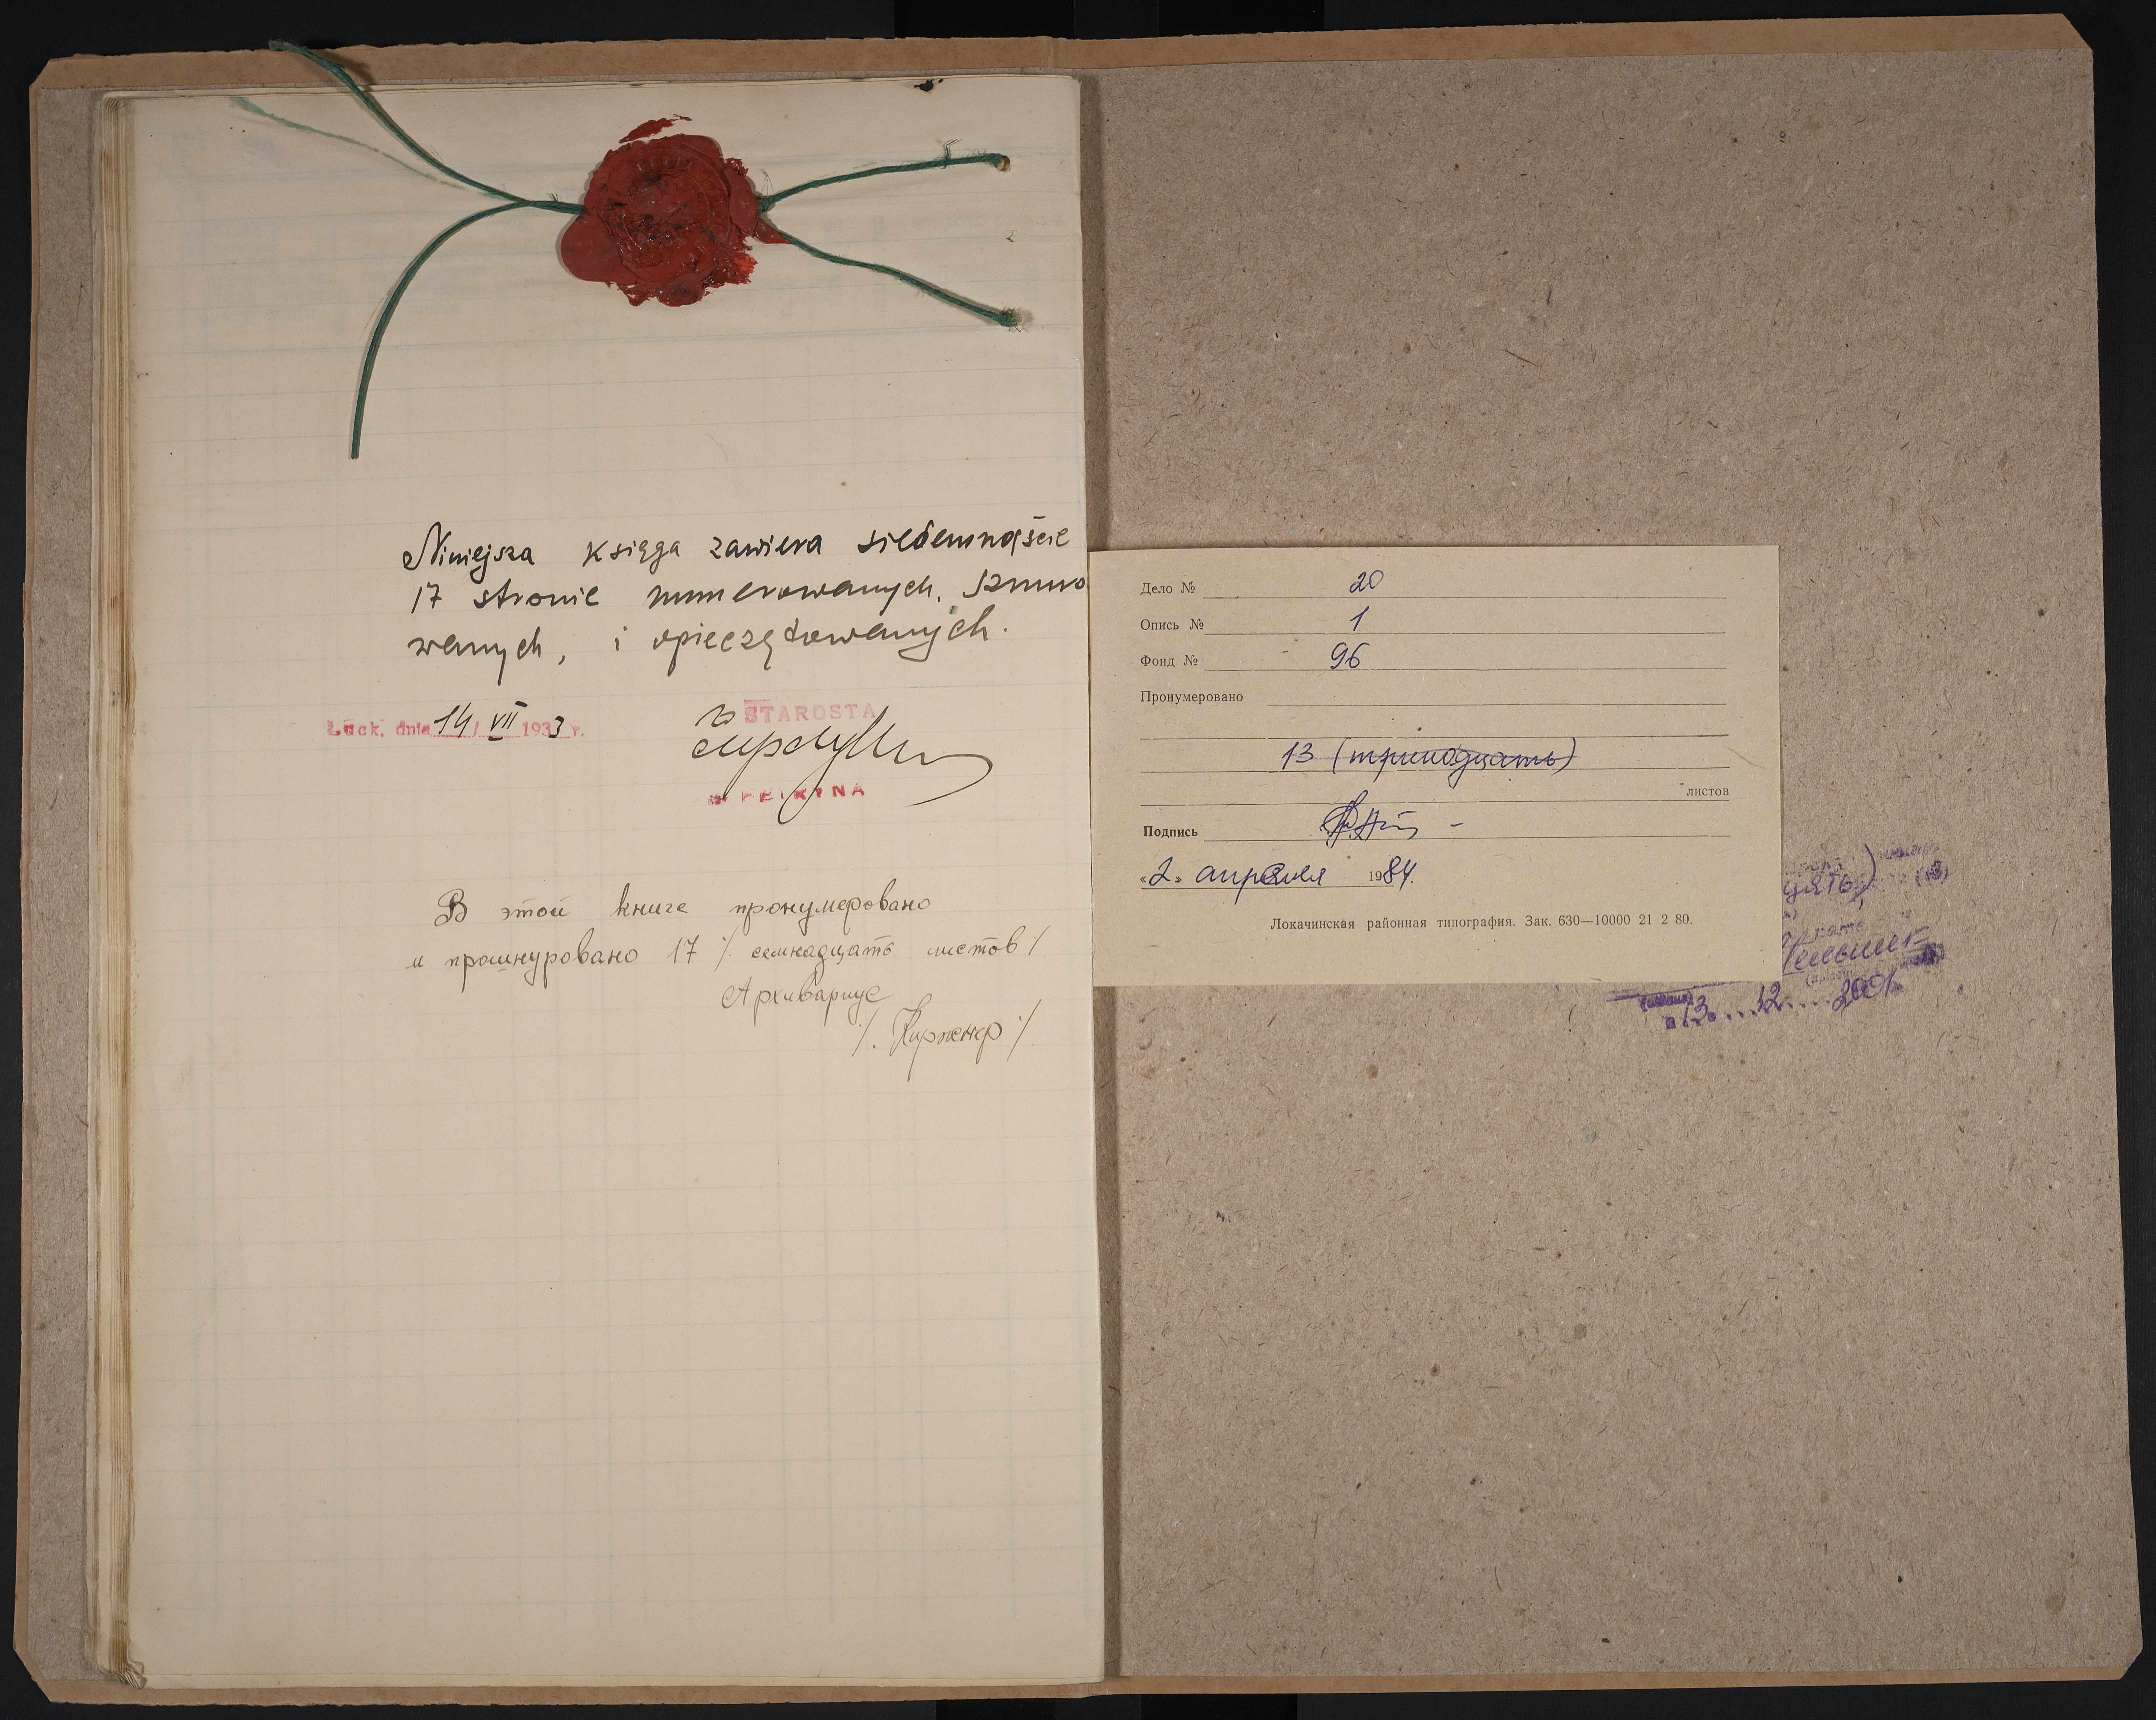 Niniejsza księga zawiera siedemnaście
17 stronic numerowanych, sznuro
wanych, i opieczętowanych.
Łuck, dnia 14/ VII 1933 r.
STAROSTA
В этой книге пронумеровано
и прошнуровано 17 /. семнадцать листов ./
Архивариус
/. Киржнер ./
Дело № 20
Опись № 1
Фонд № 96
Пронумеровано
13 (тринадцать)
листов
Подпись
«2» апреля 1984.
Локачинская районная типография. Зак. 630—10000 21 2 80.
(13)
13. 12. 2001